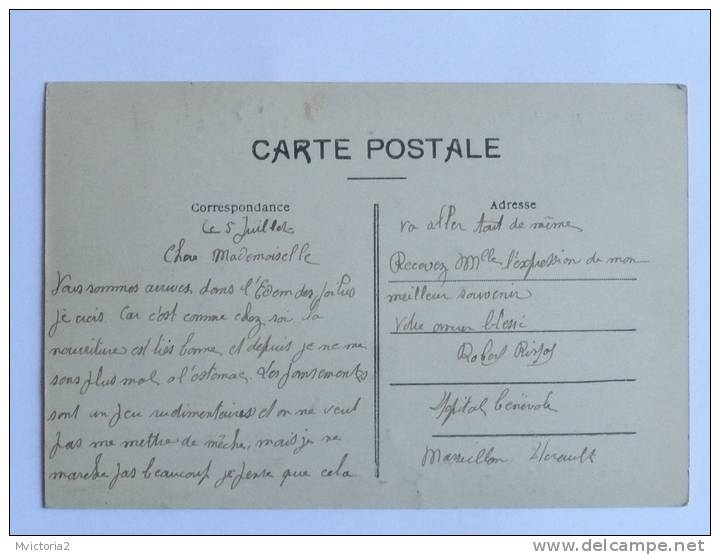 CARTE POSTALE
Correspondance
Le 5 Juillet
Chère Mademoiselle
Nous sommes arrivés dans l'Eden des Poilus
je crois. Car c'est comme chez soi. la
nourriture est très bonne et depuis je ne me
sens plus mal a l'estomac. Les pansements
sont un peu rudimentaires et on ne veut
pas me mettre de mêche, mais je ne
marche pas beaucoup je pense que cela
Adresse
va aller tout de même
Recevez Mlle l'expression de mon
meilleur souvenir
Votre ancien blessé
Robert
Hopital bénévole
Marseillan Herault
Mvictoria2
www.delcampe.net